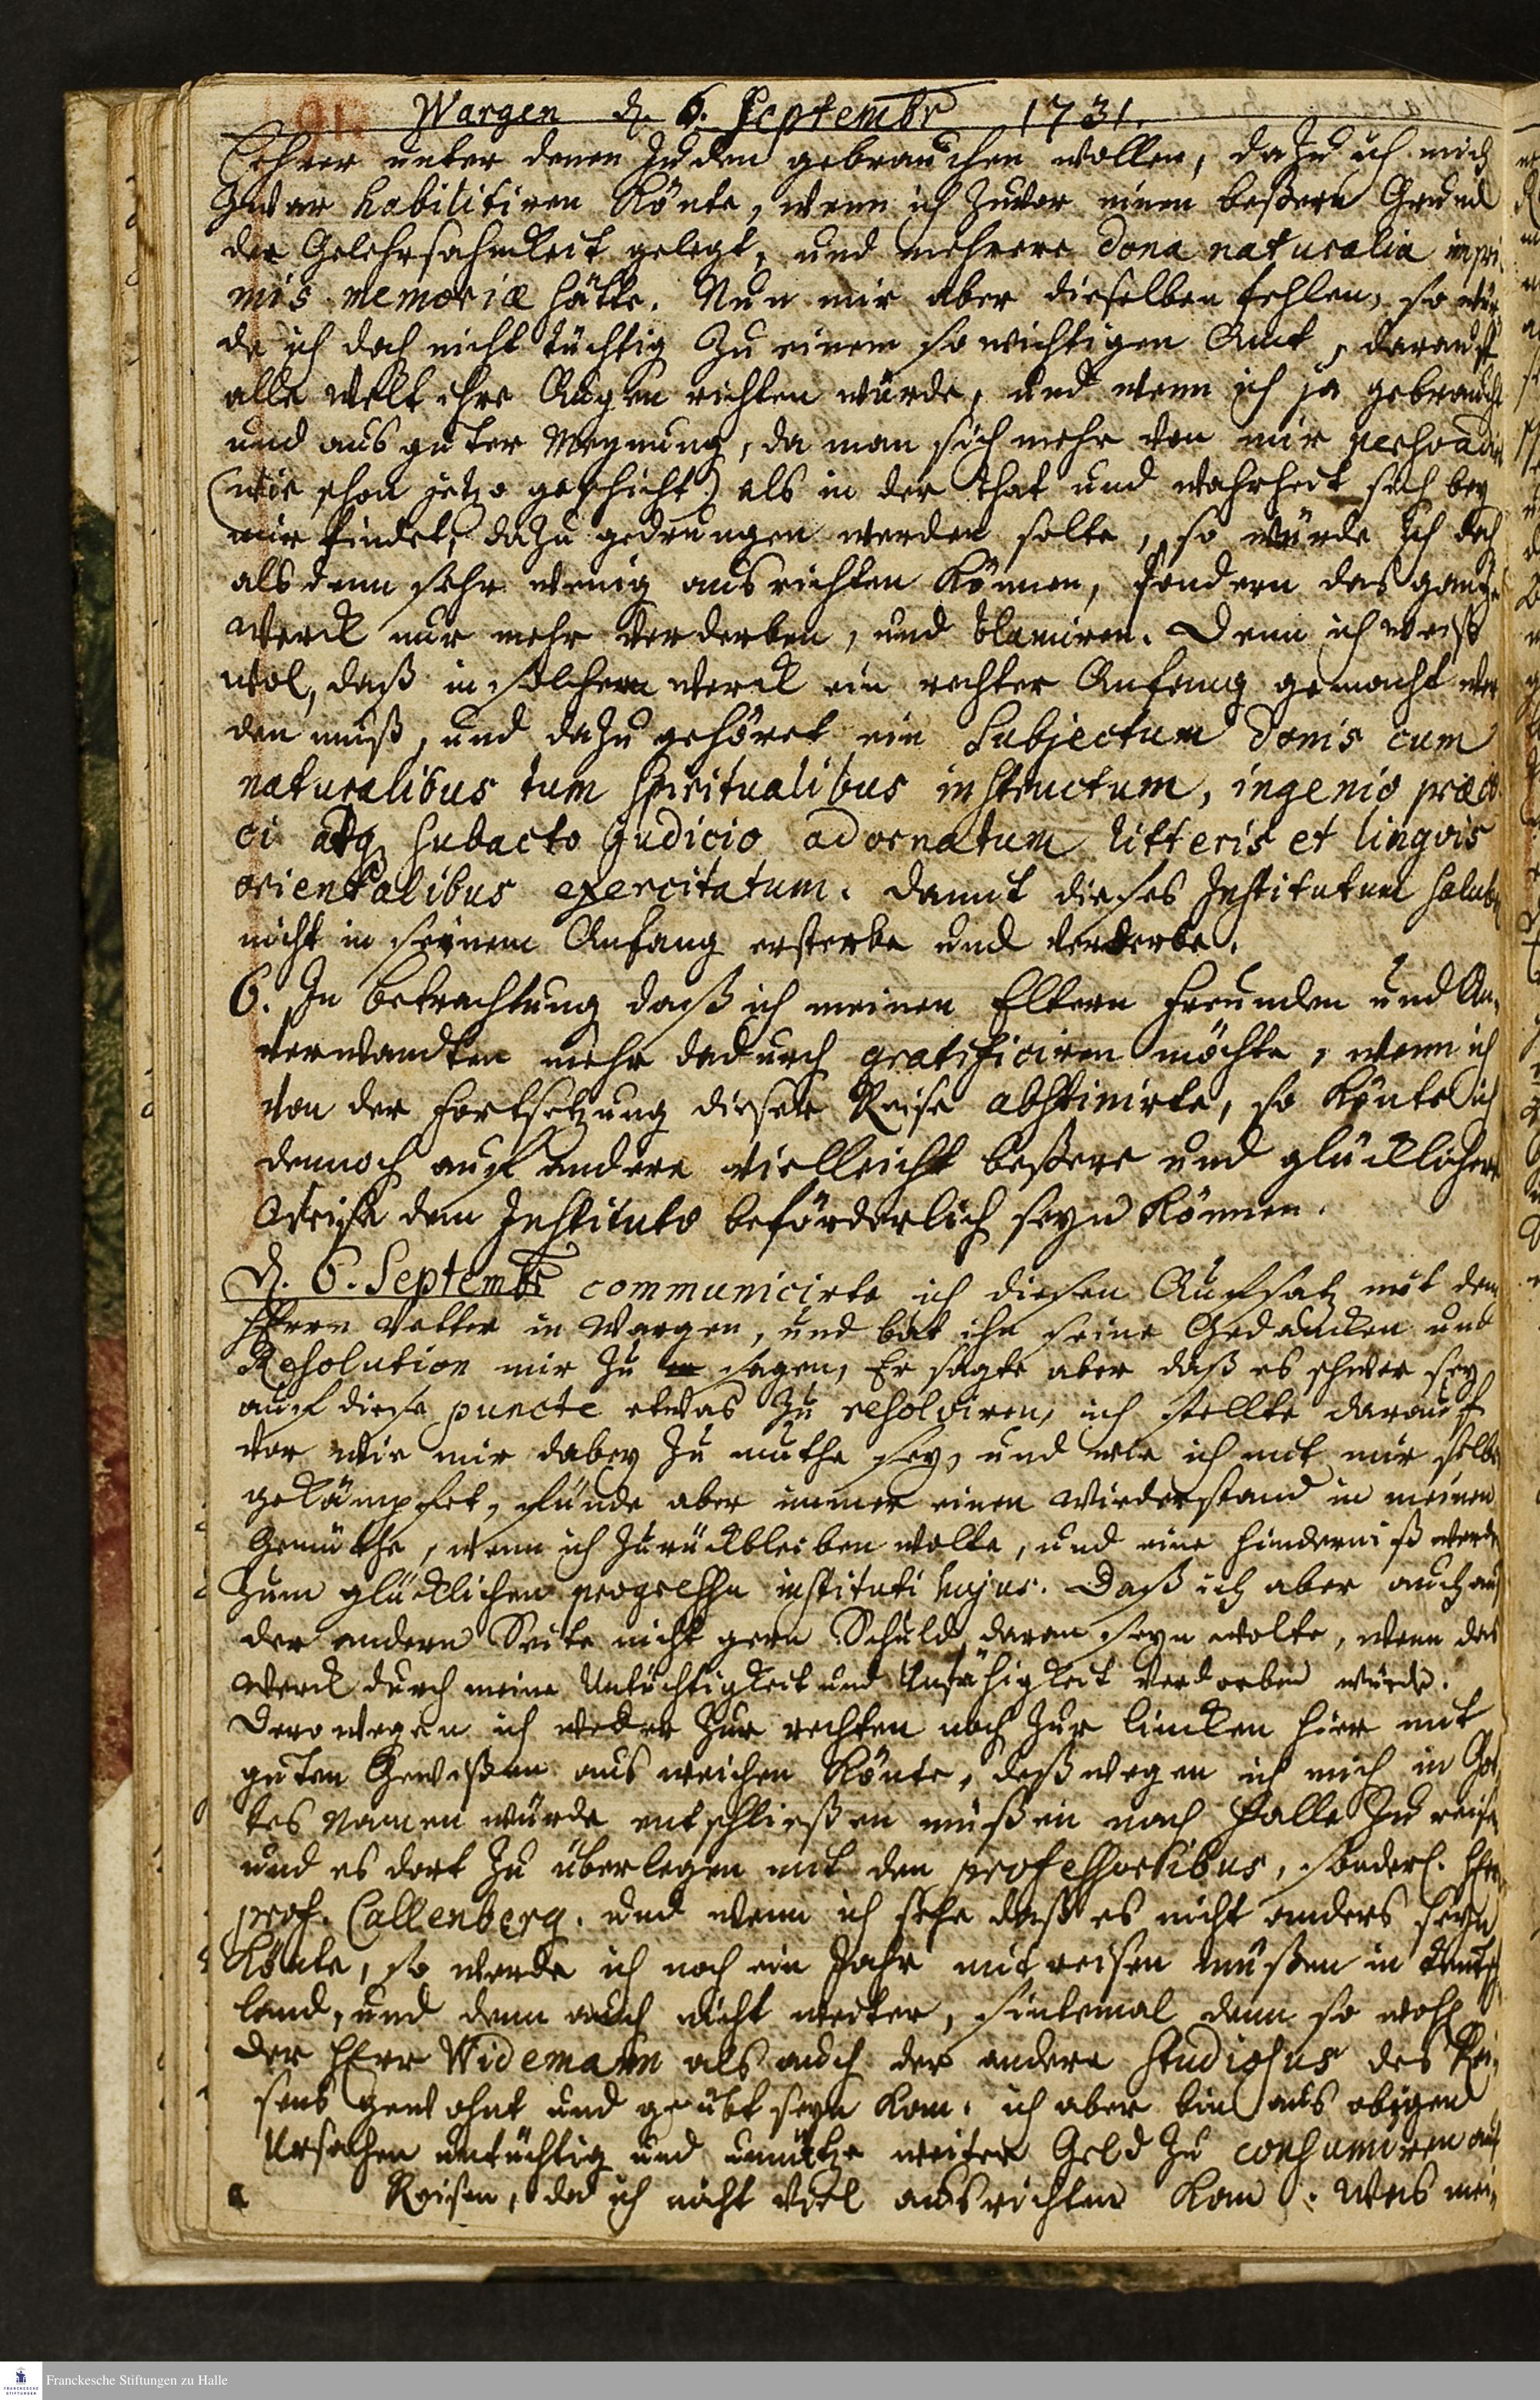 Wargen d. 6. Septembr 1731.
Lehrer unter denen Juden gebrauchen wollen, dazu ich mich
zwar habilitiren könte, wenn ich zuvor einen beßern Grund
der Gelehrsahmkeit gelegt, und mehrere dona naturalia inpri
mis memoriæ hätte. Nun mir aber dieselben fehlen, so wür
de ich doch nicht tüchtig zu einem so wichtigen Amt, darauff
alle Welt ihre Augen richten würde, und wenn ich ja gebraucht
und aus guter Meynung, da man sich mehr von mir persvadirt
(wie schon jetzo geschicht) als in der That und wahrheit sich bey
mir findet, dazu gedrungen werden solte, so würde ich doch
als denn sehr wenig ausrichten können, sondern das gantze
Werck nur mehr verderben, und blamiren. Denn ich weiß
wol, daß in solchem werck ein rechter Anfang gemacht wer
den muß, und dazu gehöret ein Subjectum donis cum
naturalibus tum spiritualibus instructum, ingenio præco
ci atq subacto judicio adornatum litteris et lingvis
orientalibus exercitatum. damit dieses Institutum
nicht in seinem Anfang ersterbe und verderbe.
6. In betrachtung daß ich meinen Eltern Freunden und An,
verwandten mehr dadurch gratificiren möchte, wenn ich
von der Fortsetzung dieser Reise abstinirte, so könte ich
dennoch auf andere vielleicht beßere und glücklichere
Weise dem Instituto beförderlich seyn können.
d. 6. Septembr communicirte ich diesen Auffsatz mit dem
HErrn Vetter in Wargen, und bat ihn seine Gedancken und
Resolution mir zu sagen, Er sagte aber daß es schwer sey
auf diese puncte etwas zu resolviren, ich stellte darauff
vor wie mir dabey zu muthe sey, und wie ich mit mir selbst
gekämpfet, fünde aber immer einen Wiederstand in meinen
Gemüthe, wenn ich zurückbleiben wolte, und eine hinderniß werde
zum glücklichen progressu instituti hujus. Daß ich aber auch auf
der andern Seite nicht gern Schuld daran seyn wolte, wenn das
Werck durch meine Untüchtigkeit und Unfähigkeit verdorben würde.
Derowegen ich weder zur rechten noch zur lincken hier mit
guten Gewißen aus weichen könte, deßwegen ich mich in Got
tes Namen würde entschließen müßen nach Halle zu reisen
und es dort zu überlegen mit den professoribus, sonderl. HErn
prof. Callenberg. und wenn ich sehe daß es nicht anders seyn
könte, so werde ich noch ein Jahr mit reisen müßen in Teutsch
land, und denn auch nicht weiter, sintemal denn so wohl
der HErr Widemann als auch der andere Studiosus des Rei,
sens gewohnt und geübt seyn kan. ich aber bin aus obigen
Ursachen untüchtig und unnütze weiter Geld zu consumiren auf
Reisen, da ich nicht viel ausrichten kan. Was mei,
Franckesche Stiftungen zu Halle